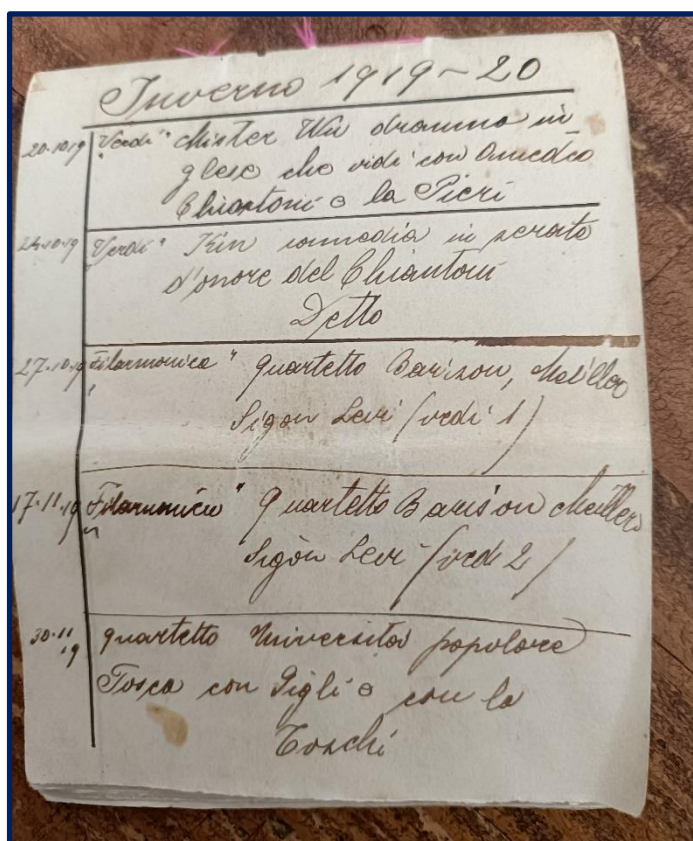 Inverno 1919-20
20.10.19 "Verdi" Mister Wu dramma in
glese che vidi con Amedeo
Chiantoni e la Pieri
"Verdi" Kin commedia in serata
d'onore del Chiantoni
Detto
27.10.19 Filarmonica" quartetto Barison,
Sigon Levi (vedi 1)
17.11.19 Filarmonica" Quartetto Barison
Sigòn Levi (vedi 2)
30.11 quartetto Università popolare
19 Tosca con Gigli e con la
Toschi